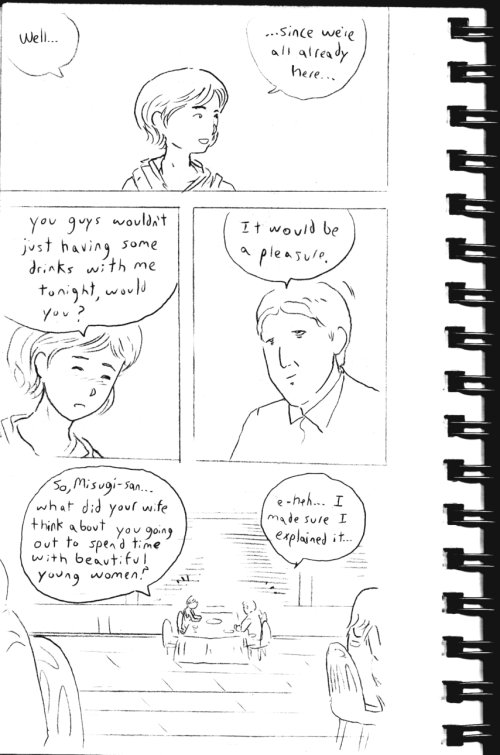 Well...
...since we're
all already
here...
you guys wouldn't
just having some
drinks with me
tonight, would
you?
It would be
a pleasure.
So, Misugi-san...
what did your wife
think about you going
out to spend time
with beautiful
young women?
e-heh... I
made sure I
explained it...